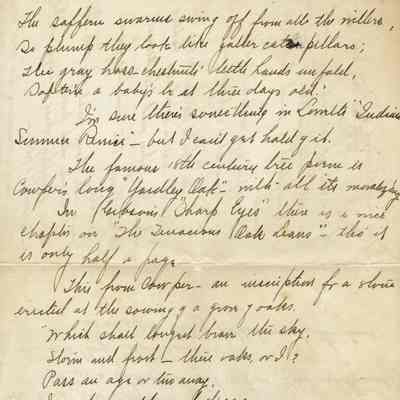 The saffern swarms swing off from all the willers,
So plump they look like yaller caterpillars;
The gray hoss-chestnuts' leetle hands unfold,
Softer'n a baby's be at three days old.'
I'm sure there's something in Lowell's "Indian
Summer Reverie" – but I can't get hold of it.
The famous 18th century tree poem is
Cowper's long "Yardley Oak" – with all its moralizing
In Gibson's "Sharp Eyes" there is a nice
chapter on "The Tenacious Oak Leaves" – tho' it
is only half a page
This from Cowper – an inscription for a stone
erected at the sowing of a grove of oaks.
"Which shall longest brave the sky,
Storm and frost – these oaks, or I?
Pass an age or two away,